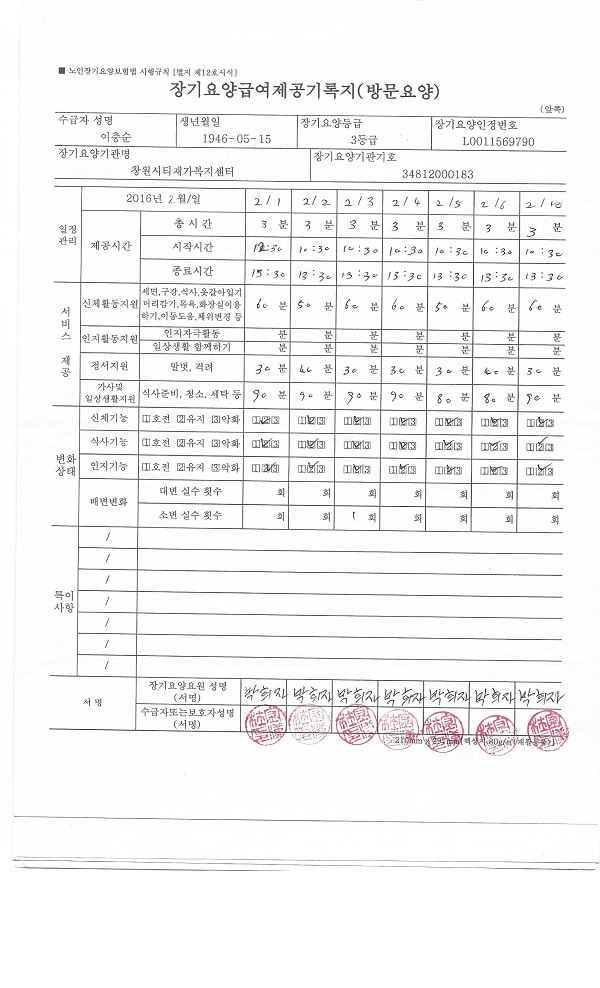 ■ 노인장기요양보험법 시행규칙 [별지 제12호서식]
장기요양급여제공기록지(방문요양)
(앞쪽)
수급자 성명 생년월일 장기요양등급 장기요양인정번호
이충순 1946-05-15 3등급 L0011569790
장기요양기관명 장기요양기관기호
창원시티재가복지센터 34812000183
일정관리 2016년 2월/일 2/1 2/2 2/3 2/4 2/5 2/6 2/10
제공시간 총 시 간 3 분 3 분 3 분 3 분 3 분 3 분 3 분
시작시간 10:30 10:30 10:30 10:30 10:30 10:30
종료시간 13:30 13:30 13:30 13:30 13:30 13:30
서비스 제공
신체활동지원 세면,구강,식사,옷갈아입기 머리감기,목욕,화장실이용 하기,이동도움,체위변경 등 60 분 50 분 60 분 60 분 50 분 60 분 60 분
인지활동지원 인지자극활동 분 분 분 분 분 분 분
일상생활 함께하기 분 분 분 분 분 분 분
정서지원 말벗, 격려 30 분 40 분 30 분 30 분 30 분 40 분 30 분
가사및 일상생활지원 식사준비, 청소, 세탁 등 90 분 90 분 90 분 90 분 80 분 80 분 90 분
변화상태
신체기능 1호전 2유지 3악화 123 123 123 123 123 123 123
식사기능 1호전 2유지 3악화 123 123 123 123 123 123 123
인지기능 1호전 2유지 3악화 123 123 123 123 123 123 123
배변변화 대변 실수 횟수 회 회 회 회 회 회 회
소변 실수 횟수 회 회 1 회 회 회 회 회
특이사항
/
/
/
/
/
/
/
서 명 장기요양요원 성명 (서명) 박희자 박희자 박희자 박희자 박희자 박희자 박희자
수급자또는보호자성명 (서명)
210mm×297mm[백상지 80g/㎡(재활용품)]